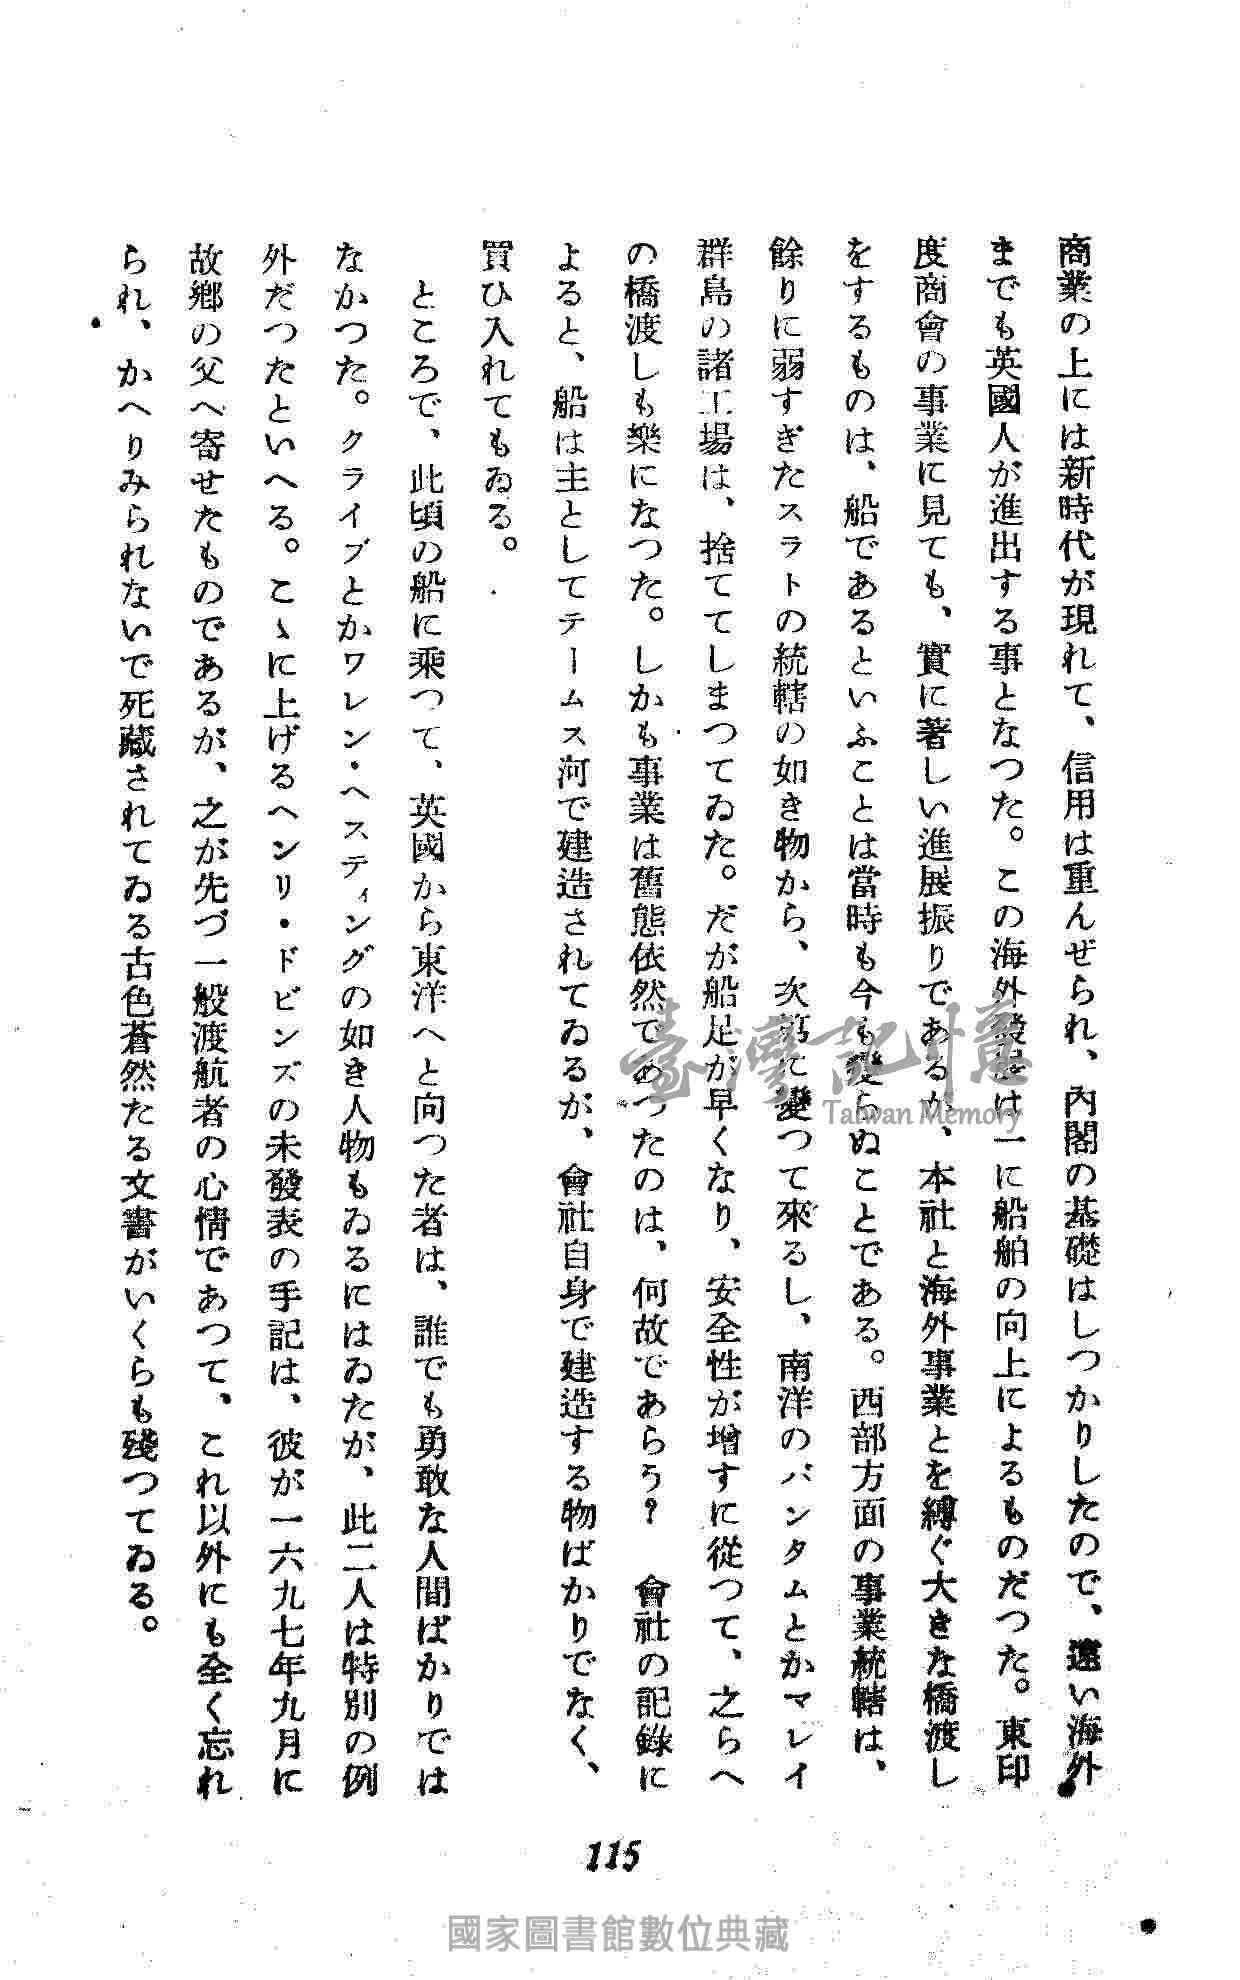 商業の上には新時代が現れて、信用は重んぜられ、內閣の基礎はしつかりしたので、遠い海外
までも英國人が進出する事となつた。この海外發展は一に船舶の向上によるものだつた。東印
度商會の事業に見ても、實に著しい進展振りであるが、本社と海外事業とを縛ぐ大きな橋渡し
をするものは、船であるといふことは當時も今も變らぬことである。西部方面の事業統轄は、
餘りに弱すぎたスラトの統轄の如き物から、次第に變つて來るし、南洋のバンタムとかマレイ
群島の諸工場は、捨ててしまつてゐた。だが船足が早くなり、安全性が增すに從つて、之らへ
の橋渡しも樂になつた。しかも事業は舊態依然であつたのは、何故であらう？　會社の記錄に
よると、船は主としてテームス河で建造されてゐるが、會社自身で建造する物ばかりでなく、
買ひ入れてもゐる。
ところで、此頃の船に乘つて、英國から東洋へと向つた者は、誰でも勇敢な人間ばかりでは
なかつた。クライブとかワレン・ヘスティングの如き人物もゐるにはゐたが、此二人は特別の例
外だつたといへる。こゝに上げるヘンリ・ドビンズの未發表の手記は、彼が一六九七年九月に
故鄕の父へ寄せたものであるが、之が先づ一般渡航者の心情であつて、これ以外にも全く忘れ
られ、かへりみられないで死藏されてゐる古色蒼然たる文書がいくらも殘つてゐる。
臺灣記憶
Taiwan Memory
115
國家圖書館數位典藏